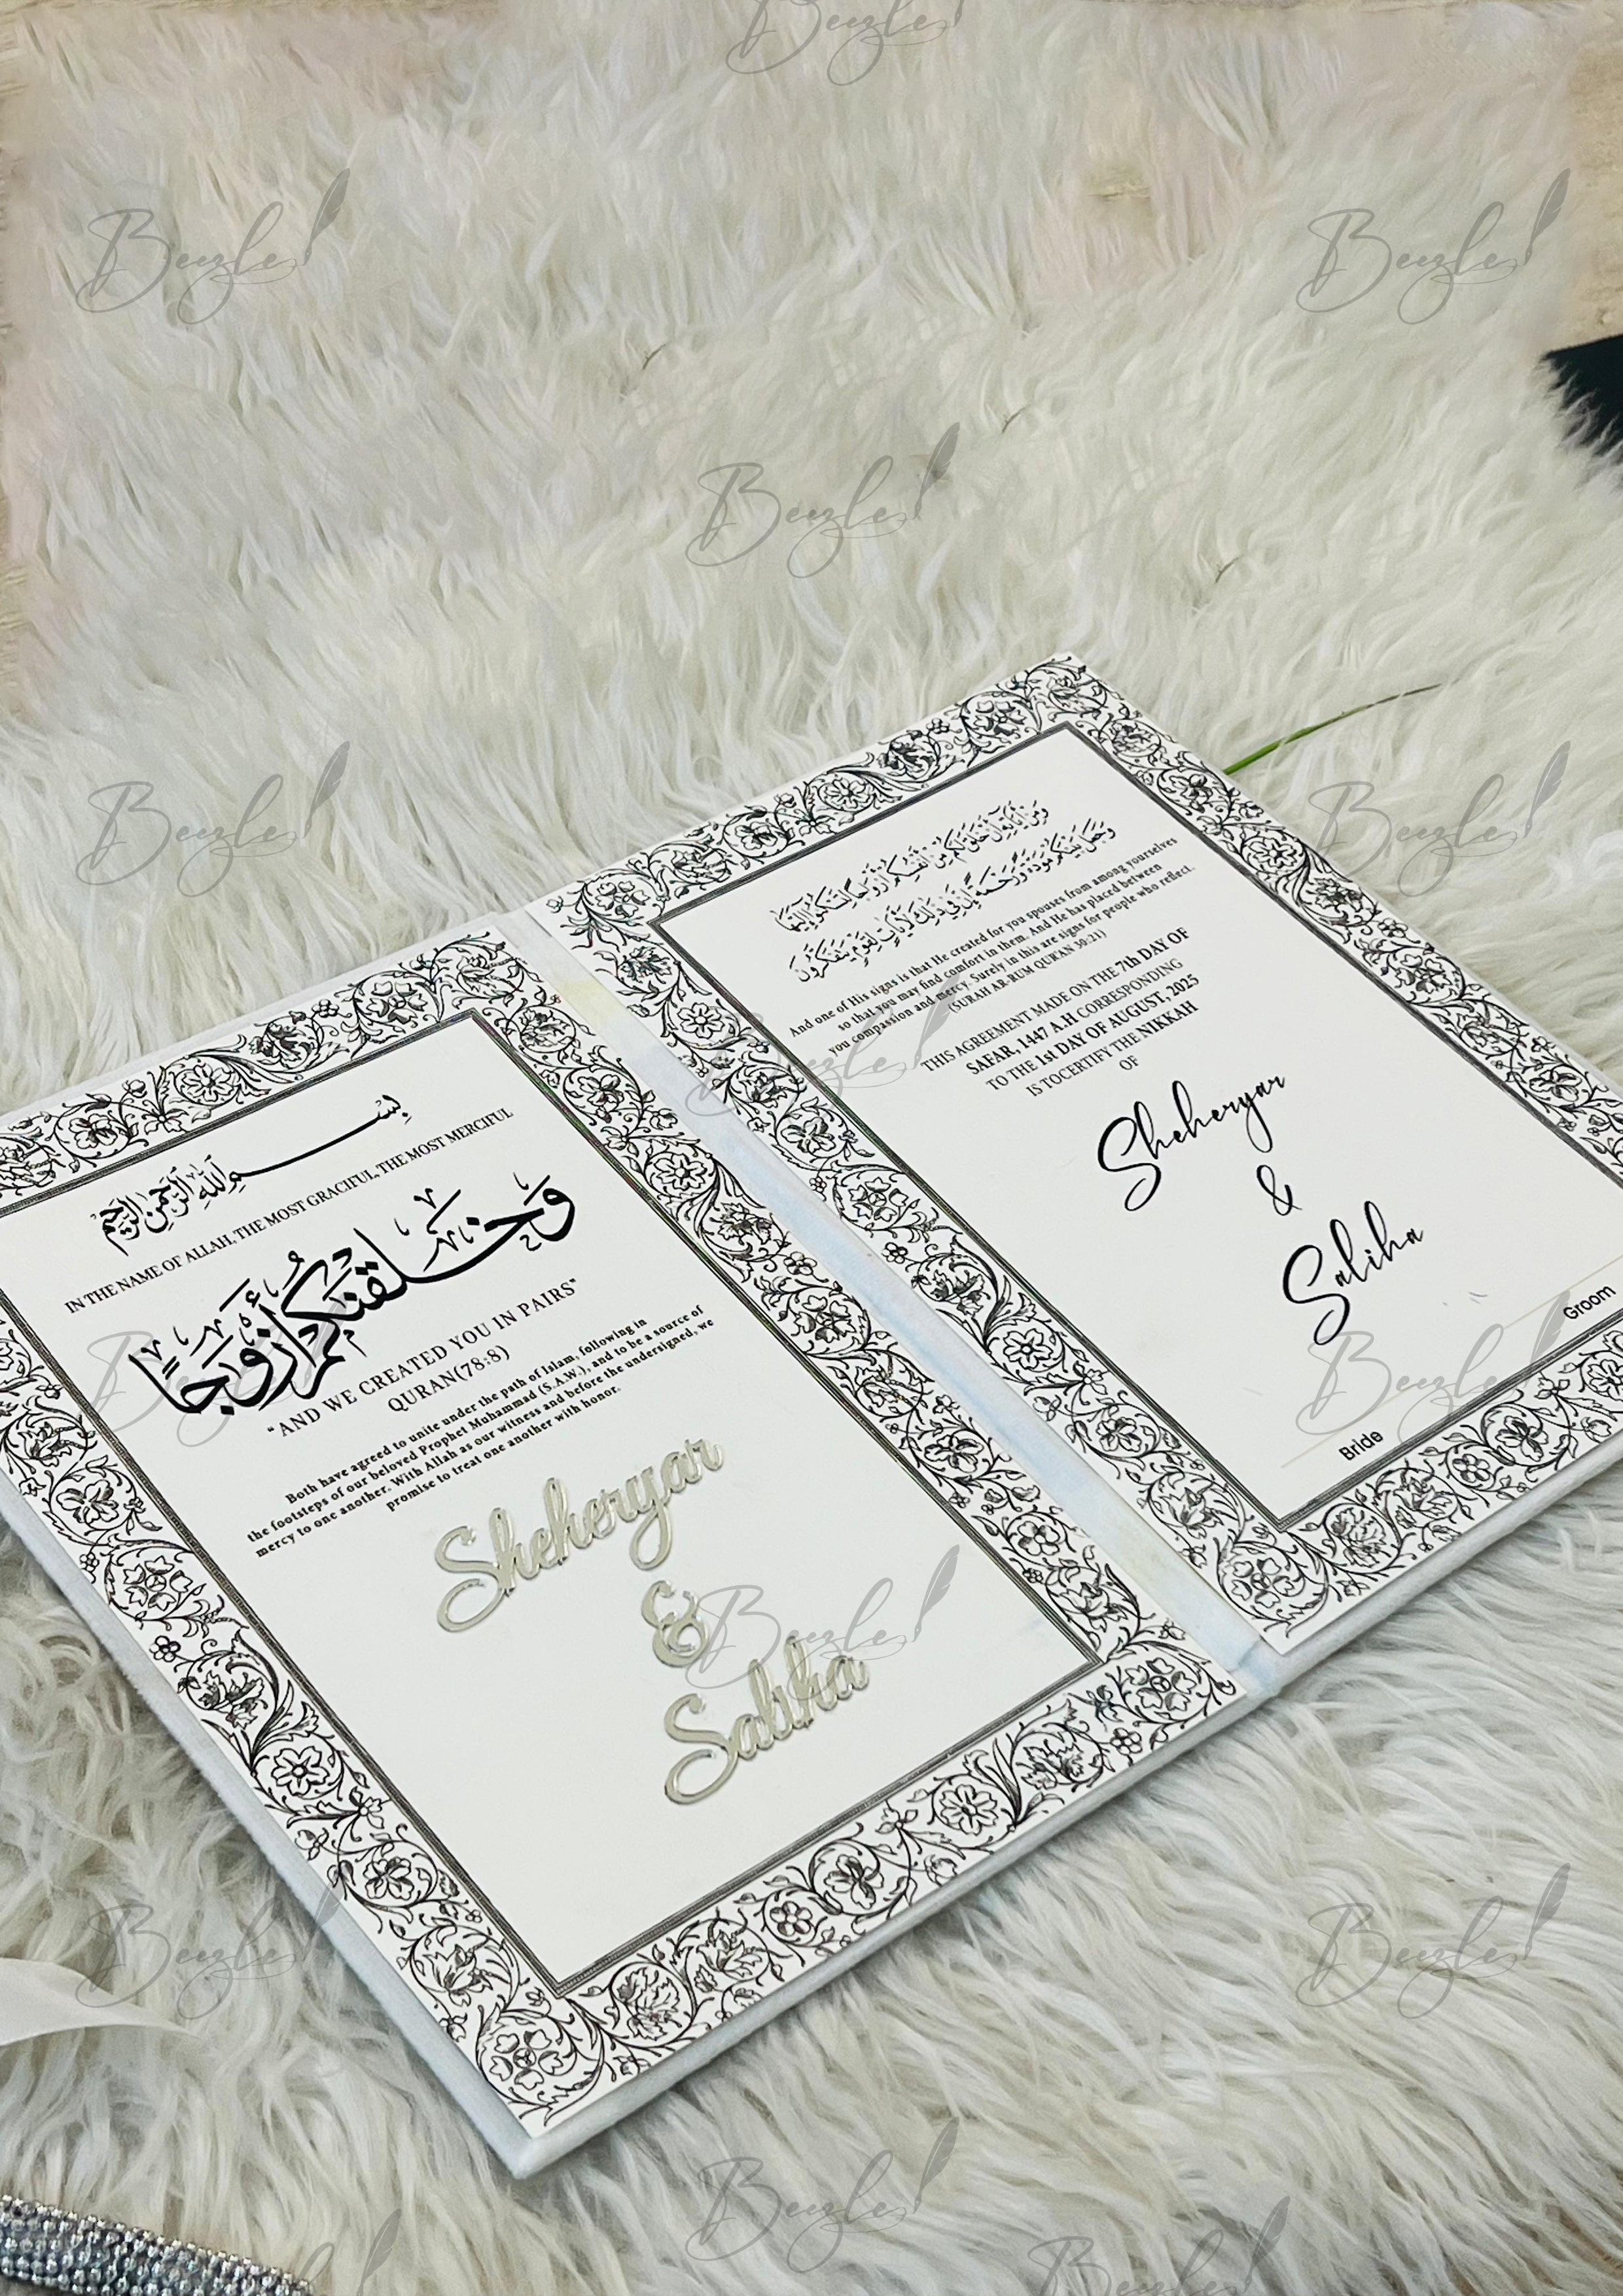 بِسْــــــمِ اللهِ الرَّحْمٰنِ الرَّحِيْمِ
IN THE NAME OF ALLAH, THE MOST GRACIFUL, THE MOST MERCIFUL
وَخَلَقْنَٰكُمْ أَزْوَٰجًا
“AND WE CREATED YOU IN PAIRS”
QURAN(78:8)
Both have agreed to unite under the path of Islam, following in
the footsteps of our beloved Prophet Muhammad (S.A.W.), and to be a source of
mercy to one another. With Allah as our witness and before the undersigned, we
promise to treat one another with honor.
Sheheryar
&
Saliha
وَمِنْ آيَاتِهِ أَنْ خَلَقَ لَكُم مِّنْ أَنفُسِكُمْ أَزْوَاجًا لِّتَسْكُنُوا إِلَيْهَا
وَجَعَلَ بَيْنَكُم مَّوَدَّةً وَرَحْمَةً إِنَّ فِي ذَٰلِكَ لَآيَاتٍ لِّقَوْمٍ يَتَفَكَّرُونَ
And one of His signs is that He created for you spouses from among yourselves
so that you may find comfort in them. And He has placed between
you compassion and mercy. Surely in this are signs for people who reflect.
(SURAH AR-RUM QURAN 30:21)
THIS AGREEMENT MADE ON THE 7th DAY OF
SAFAR, 1447 A.H CORRESPONDING
TO THE 1st DAY OF AUGUST, 2025
IS TOCERTIFY THE NIKKAH
OF
Sheheryar
&
Saliha
Bride
Groom
Beezle
Beezle
Beezle
Beezle
Beezle
Beezle
Beezle
Beezle
Beezle
Beezle
Beezle
Beezle
Beezle